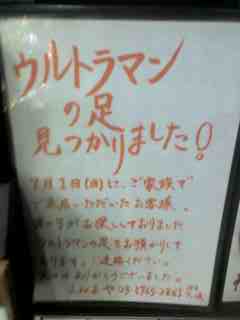 ウルトラマン
の足
見つかりました!
7月1日(日)に、ご家族で
ご来店いただいたお客様。
お探ししておりました
ウルトラマンの足をお預かりして
おります。ご連絡ください。
ありがとうございました。